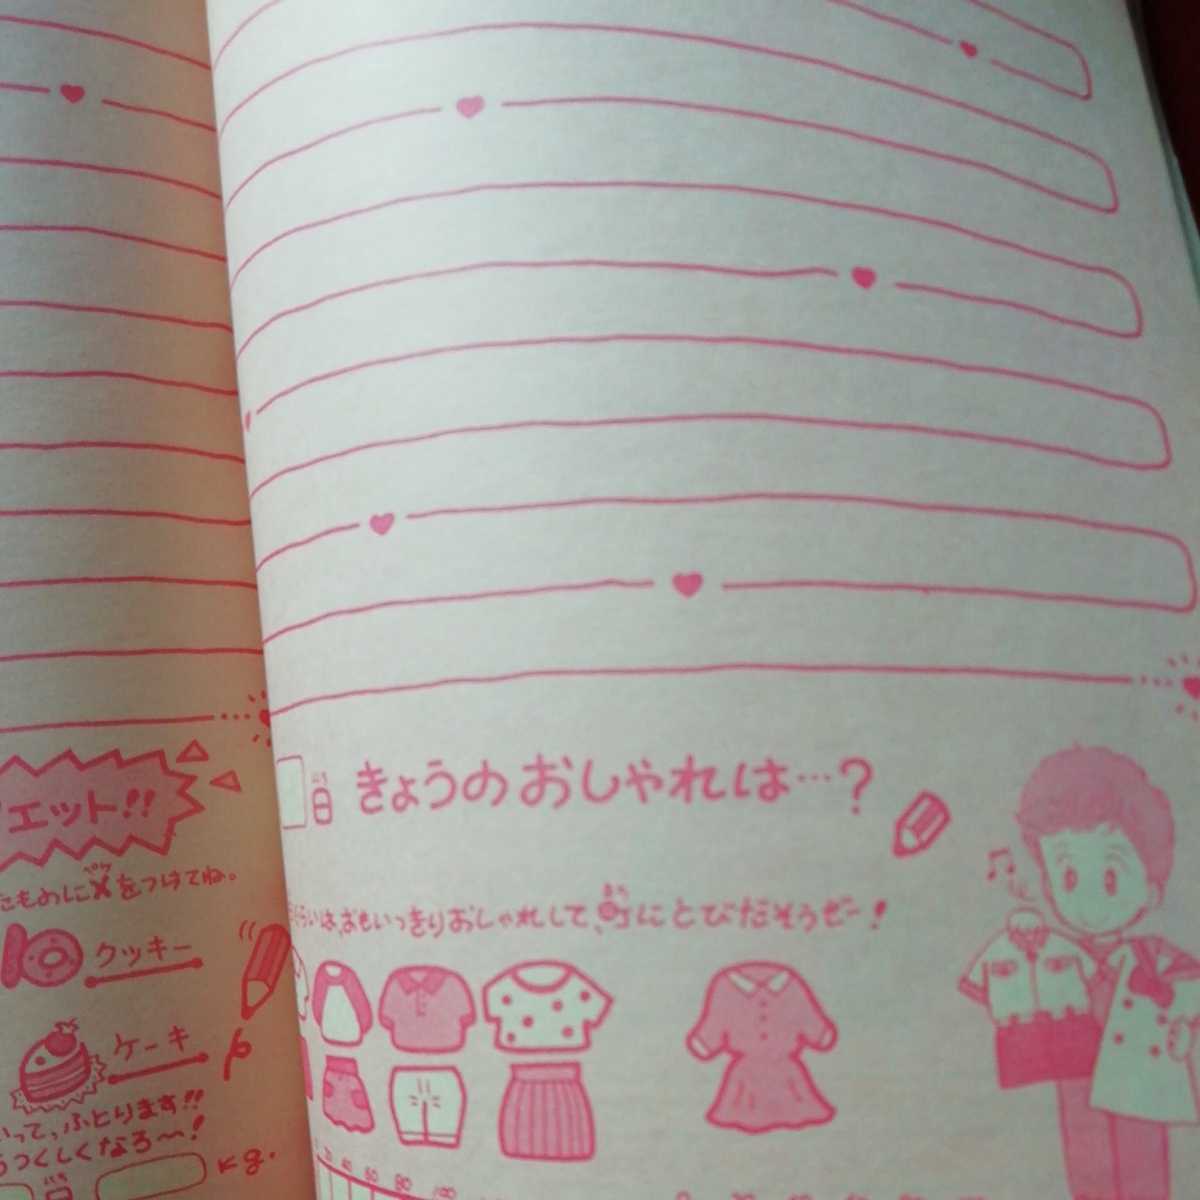 エット!!
たものに✕をつけてね。
ペケ
クッキー
ケーキ
って、ふとります!!
うつくしくなろ〜!
にち
日
kg.
にち
日
きょうのおしゃれは…?
まち
ぐらいは、おもいっきりおしゃれして、町にとびだそうぜー!
20 40 60 80 100